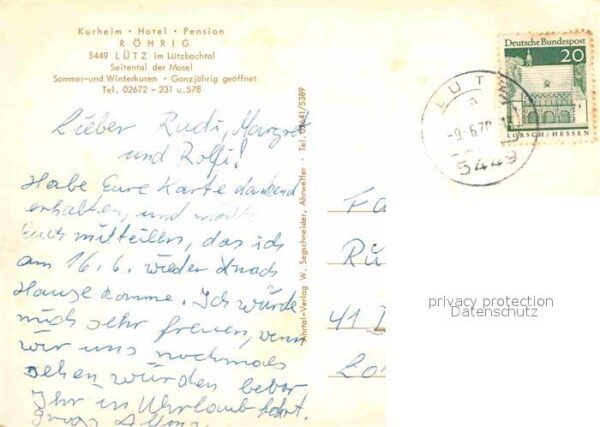 Kurheim • Hotel • Pension
RÖHRIG
5449 LÜTZ im Lützbachtal
Seitental der Mosel
Sommer-und Winterkuren • Ganzjährig geöffnet
Tel. 02672 - 231 u. 578
Lieber Rudi, Margret
und Rolfi!
Habe Eure Karte dankend
erhalten, und möchte
Euch mitteilen, das ich
am 16.6. wieder nach
Hause komme. Ich würde
mich sehr freuen, wenn
wir uns nochmals
sehen würden bevor
Ihr in Uhrlaub fahrt.
Gruss
Ahrtal-Verlag W. Segschneider, Ahrweiler • Tel. 02641/5389
Deutsche Bundespost
20
LORSCH/HESSEN
LÜTZ
a
-9.6.70
5449
Fa
Rü
41 D
privacy protection
Datenschutz